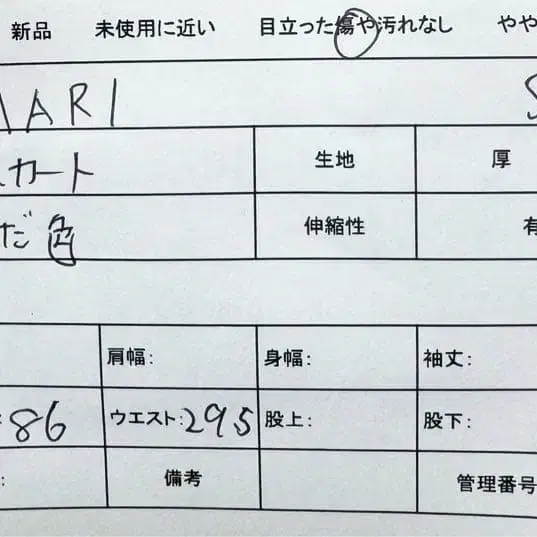 新品 未使用に近い 目立った傷や汚れなし やや
ARI
カート 生地 厚
だ色 伸縮性 有
肩幅: 身幅: 袖丈:
: 86 ウエスト: 29.5 股上: 股下:
: 備考 管理番号